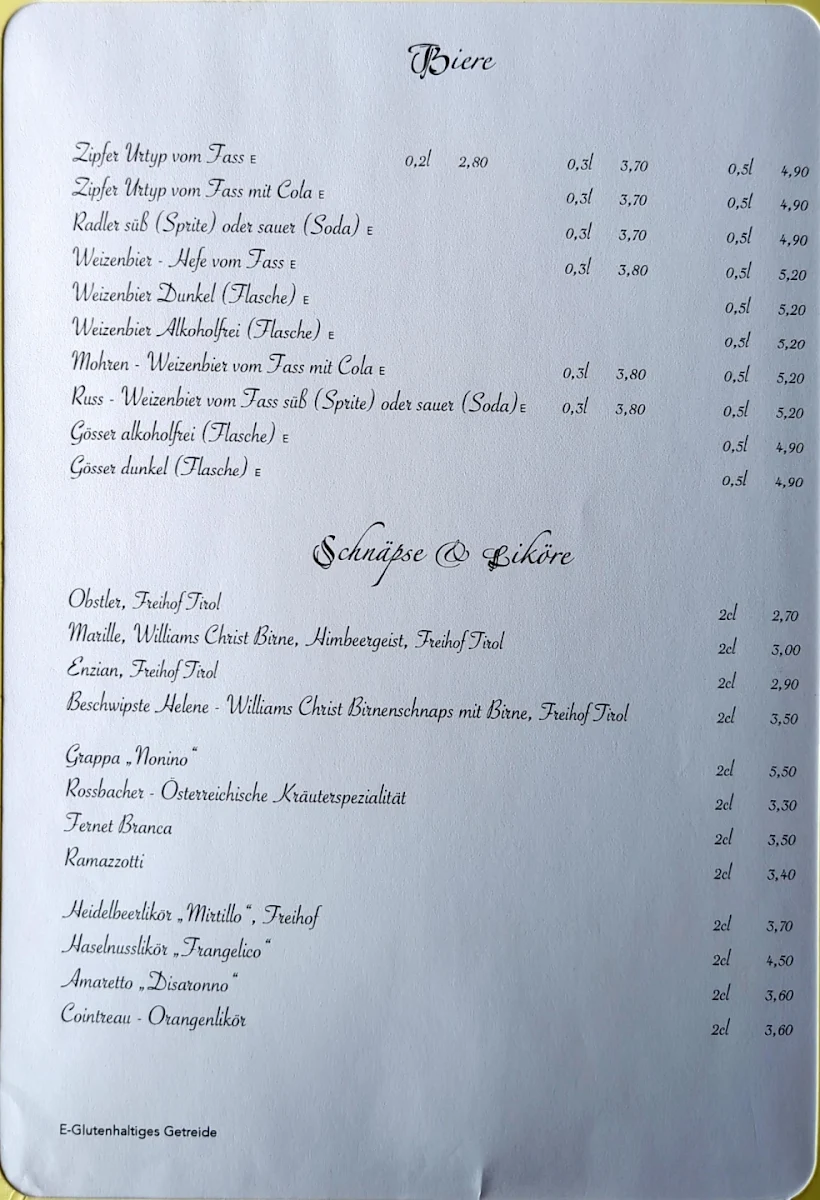 Biere
Zipfer Urtyp vom Fass E 0,2l 2,80 0,3l 3,70 0,5l 4,90
Zipfer Urtyp vom Fass mit Cola E 0,3l 3,70 0,5l 4,90
Radler süß (Sprite) oder sauer (Soda) E 0,3l 3,70 0,5l 4,90
Weizenbier - Hefe vom Fass E 0,3l 3,80 0,5l 5,20
Weizenbier Dunkel (Flasche) E 0,5l 5,20
Weizenbier Alkoholfrei (Flasche) E 0,5l 5,20
Mohren - Weizenbier vom Fass mit Cola E 0,3l 3,80 0,5l 5,20
Russ - Weizenbier vom Fass süß (Sprite) oder sauer (Soda) E 0,3l 3,80 0,5l 5,20
Gösser alkoholfrei (Flasche) E 0,5l 4,90
Gösser dunkel (Flasche) E 0,5l 4,90
Schnäpse & Liköre
Obstler, Freihof Tirol 2cl 2,70
Marille, Williams Christ Birne, Himbeergeist, Freihof Tirol 2cl 3,00
Enzian, Freihof Tirol 2cl 2,90
Beschwipste Helene - Williams Christ Birnenschnaps mit Birne, Freihof Tirol 2cl 3,50
Grappa „Nonino“ 2cl 5,50
Rossbacher - Österreichische Kräuterspezialität 2cl 3,30
Fernet Branca 2cl 3,50
Ramazzotti 2cl 3,40
Heidelbeerlikör „Mirtillo“, Freihof 2cl 3,70
Haselnusslikör „Frangelico“ 2cl 4,50
Amaretto „Disaronno“ 2cl 3,60
Cointreau - Orangenlikör 2cl 3,60
E-Glutenhaltiges Getreide